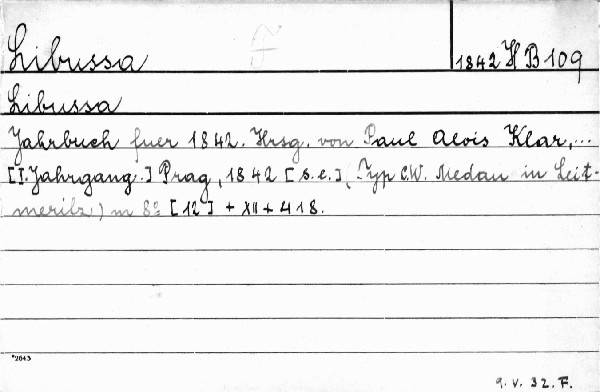 Libussa F 1842 H B 109
Libussa
Jahrbuch fuer 1842. Hrsg. von Paul Alois Klar,...
[I. Jahrgang.] Prag, 1842 [s.e.], (Typ C.W. Medau in Leit-
meritz) m 8º [12] + XII + 418.
*2043
9. V. 32. F.